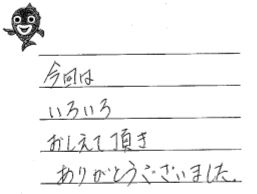 今回は
いろいろ
おしえて頂き
ありがとうございました。